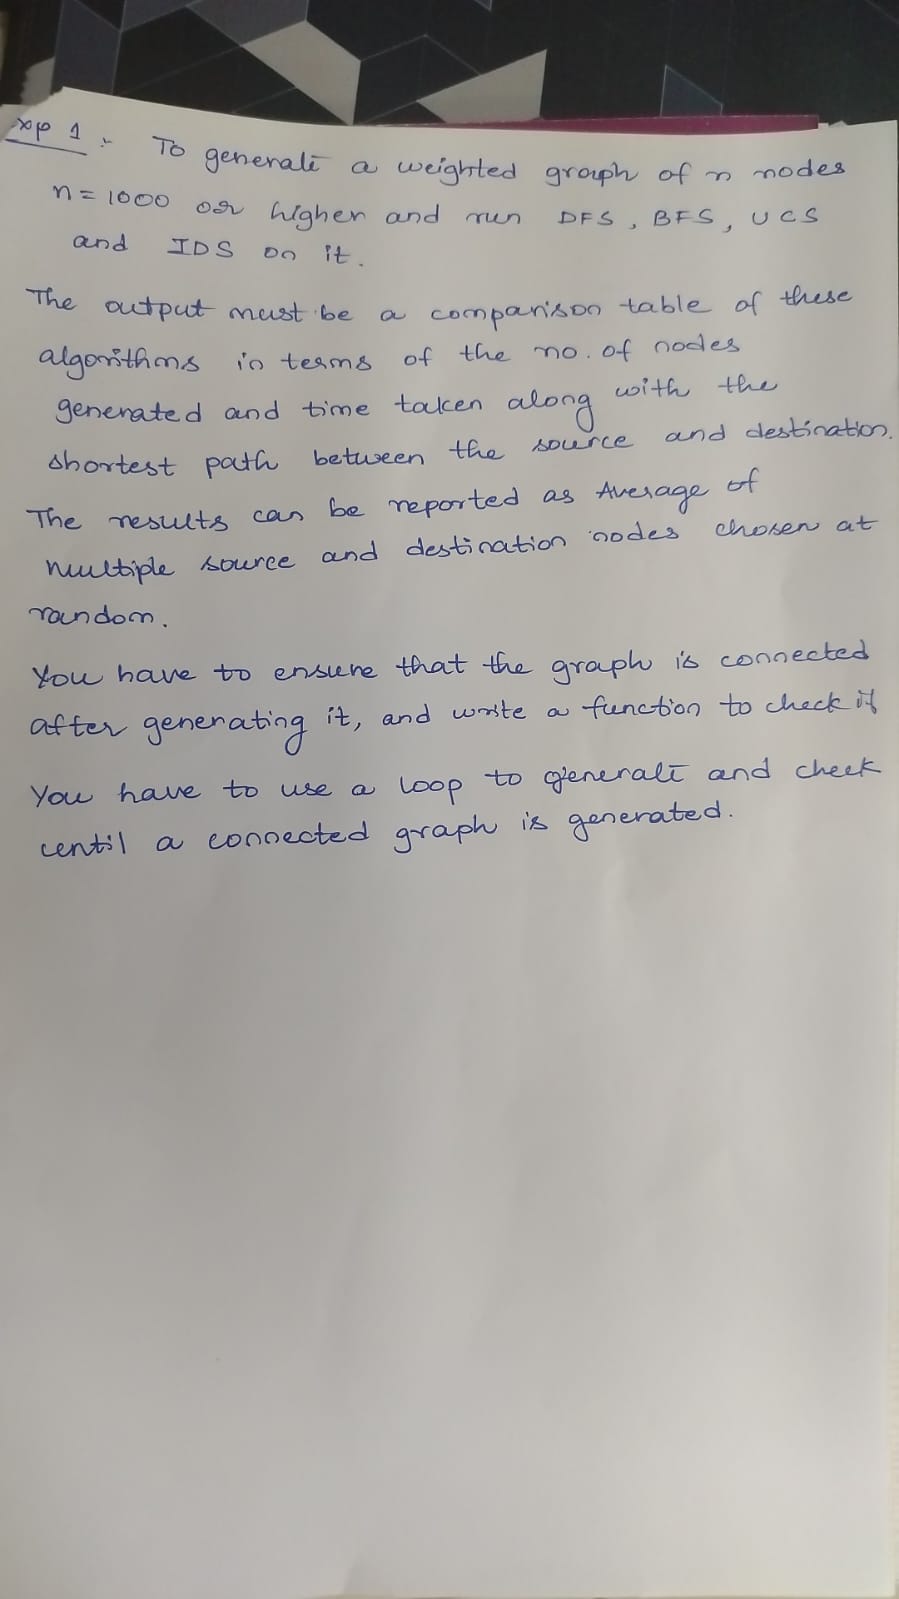 Exp 1 :- To generate a weighted graph of n nodes
n = 1000 or higher and run DFS, BFS, UCS
and IDS on it.
The output must be a comparison table of these
algorithms in terms of the no. of nodes
generated and time taken along with the
shortest path between the source and destination.
The results can be reported as Average of
multiple source and destination nodes chosen at
random.
You have to ensure that the graph is connected
after generating it, and write a function to check it
You have to use a loop to generate and check
until a connected graph is generated.